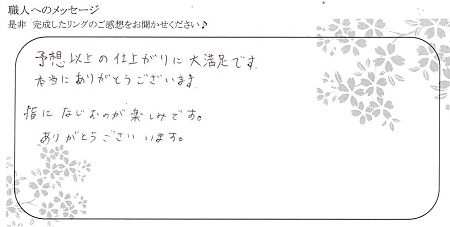 職人へのメッセージ
是非 完成したリングのご感想をお聞かせください♪
予想以上の仕上がりに大満足です。
本当にありがとうございます。
指になじむのが楽しみです。
ありがとうございます。